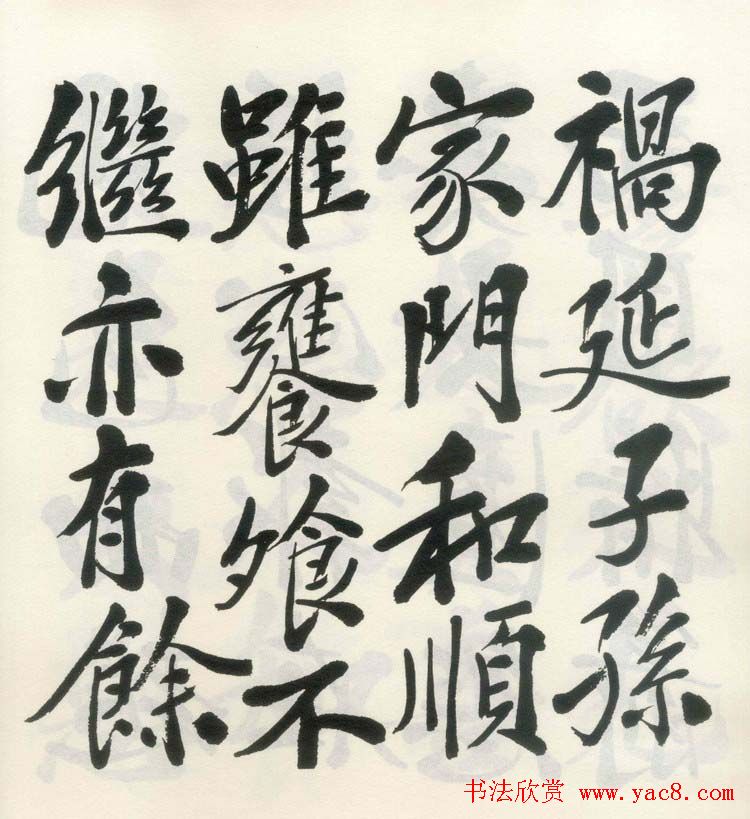 禍延子孫
家門和順
雖饔飧不
繼亦有餘
书法欣赏 www.yac8.com